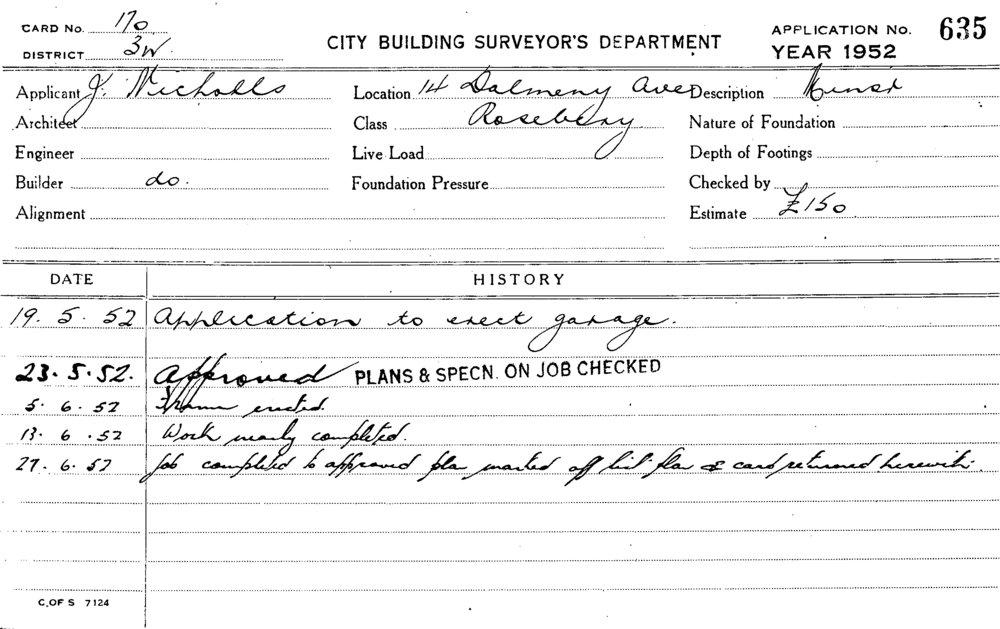 CARD No. 170
DISTRICT 3W.
CITY BUILDING SURVEYOR'S DEPARTMENT
APPLICATION No. 635
YEAR 1952
Applicant J. Nicholls Location 14 Dalmeny Ave Description
Architect Class Rosebery Nature of Foundation
Engineer Live Load Depth of Footings
Builder do. Foundation Pressure Checked by
Alignment Estimate £150
DATE HISTORY
19. 5. 52 Application to erect garage.
23.5.52. Approved PLANS & SPECN. ON JOB CHECKED
5. 6. 52 Frame erected.
13. 6. 52 Work nearly completed.
27. 6. 52 Job completed to approved plan marked off plan & card returned herewith.
C. OF S 7124